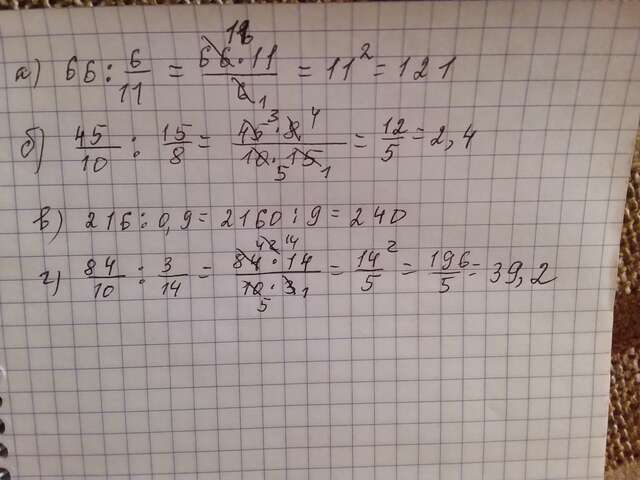 а) 66 : 6/11 = 66·11/6 = 11² = 121
б) 45/10 : 15/8 = 45·8/10·15 = 12/5 = 2,4
в) 216 : 0,9 = 2160 : 9 = 240
г) 84/10 : 3/14 = 84·14/10·3 = 14²/5 = 196/5 = 39,2